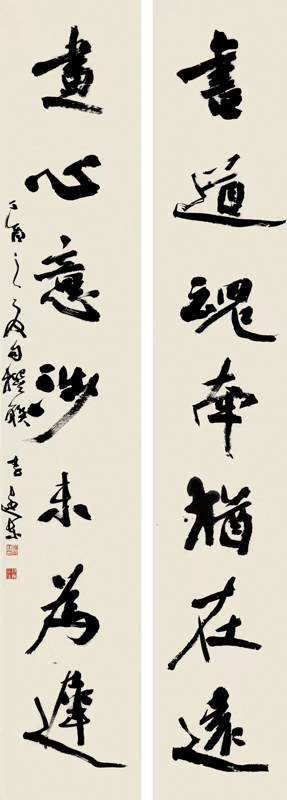 書道魂牵猶在遠
畫心意涉未為遲
丁酉之夏自撰联